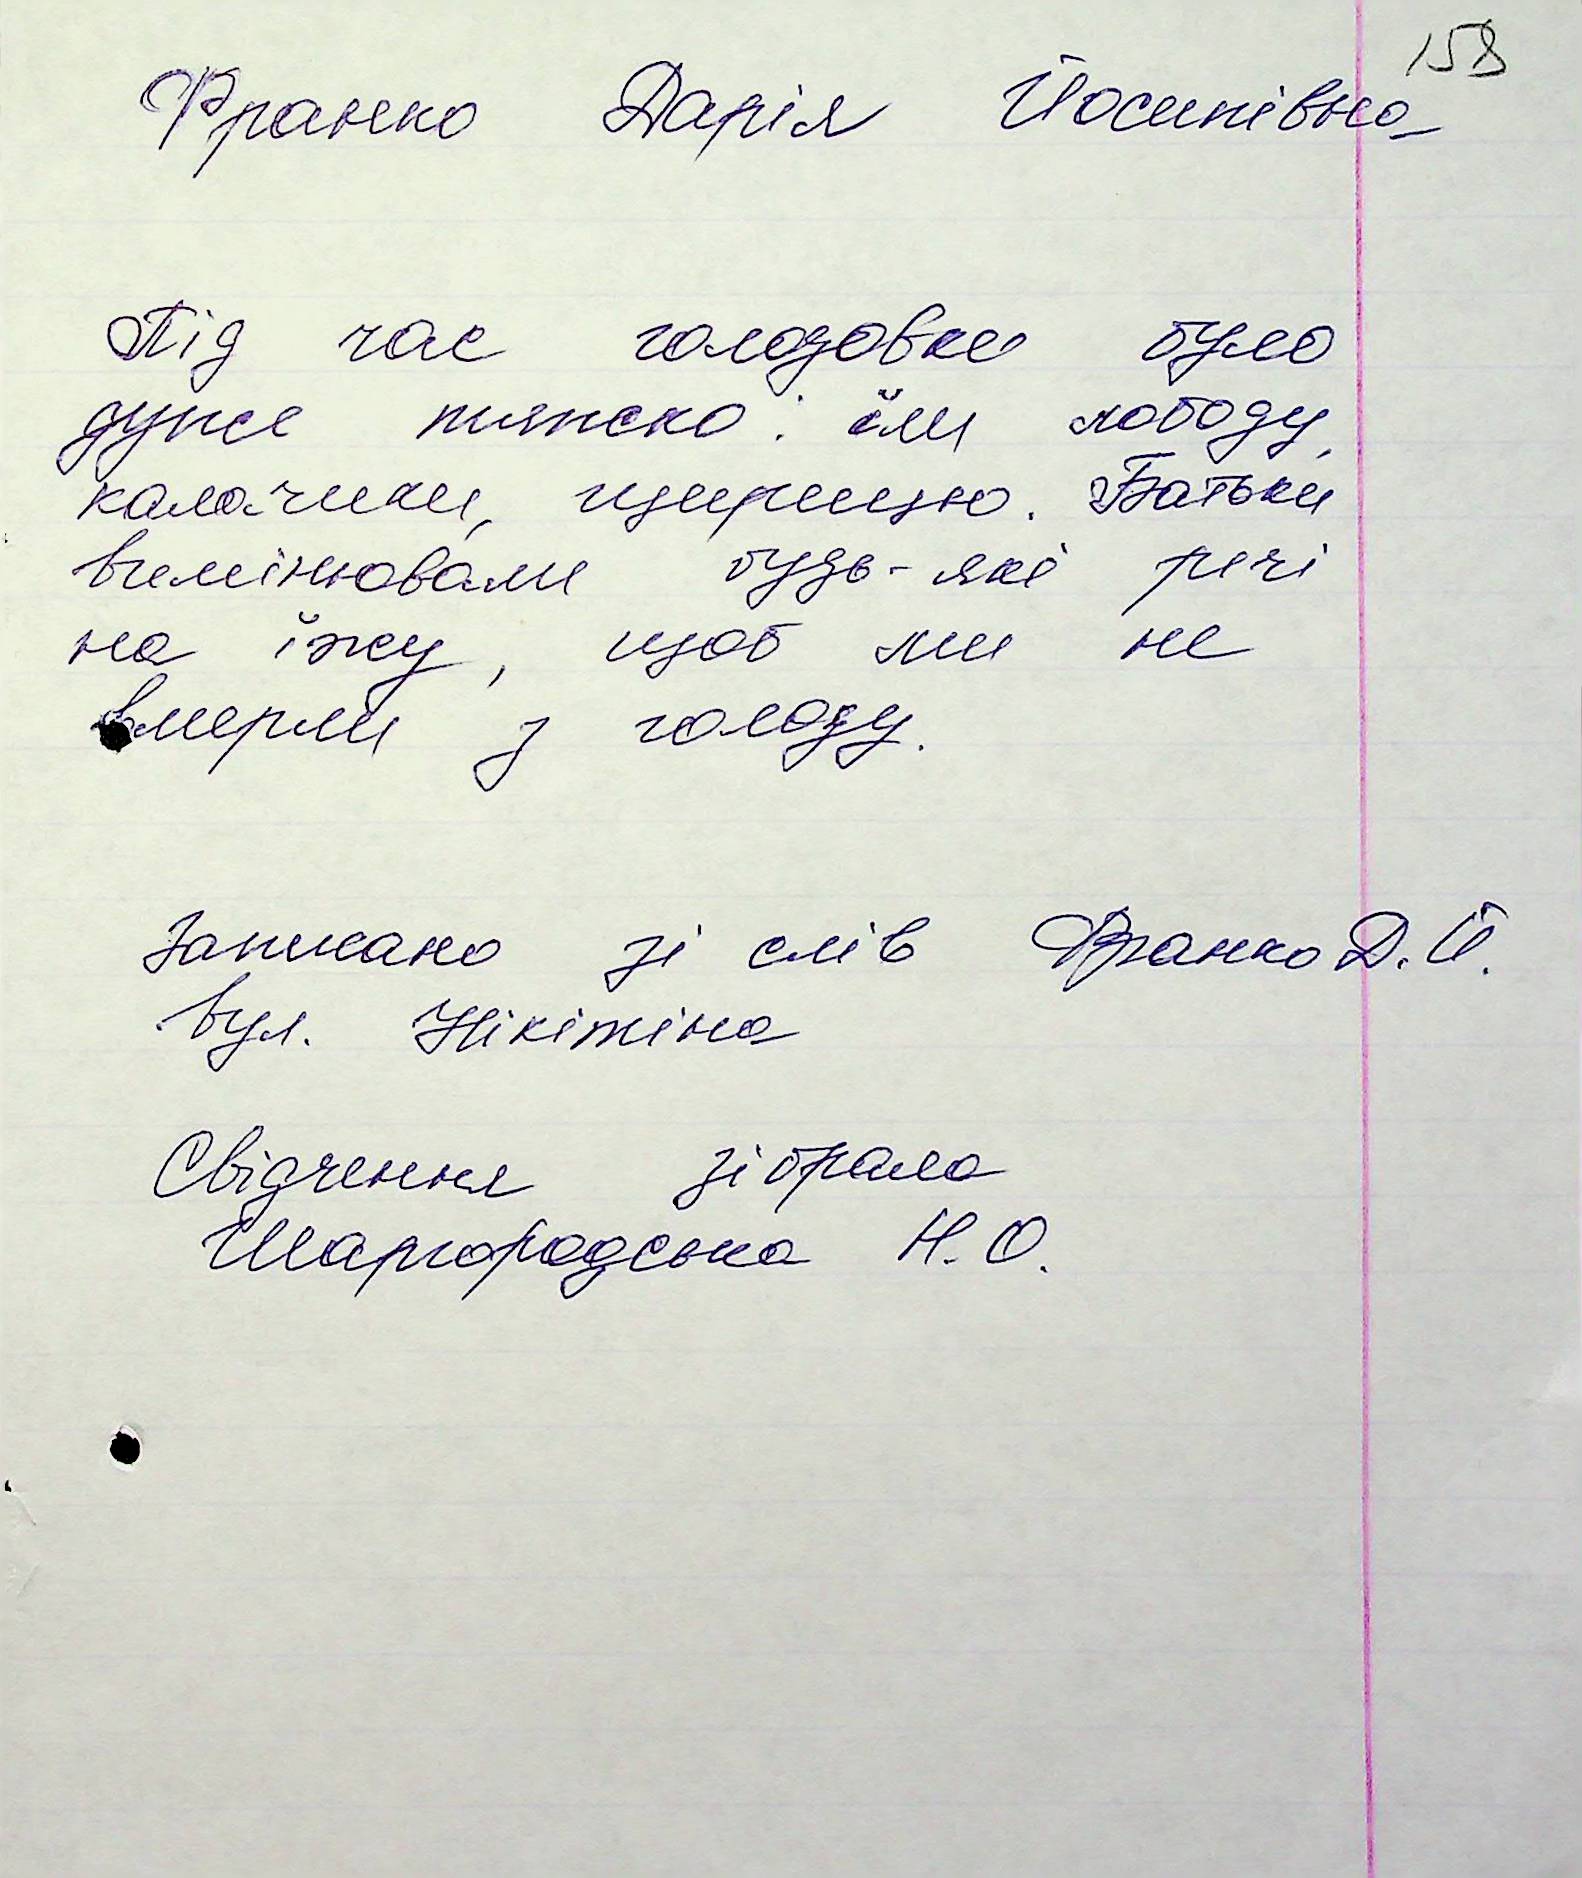 158
Франко Дарія Йосипівна
Під час голодовки було
дуже тяжко: їли лободу,
калачики, щирицю. Батьки
вимінювали будь-які речі
на їжу, щоб ми не
вмерли з голоду.
Записано зі слів Франко Д. Й.
вул. Нікітіна
Свідчення зібрала
Шаргородська Н. О.